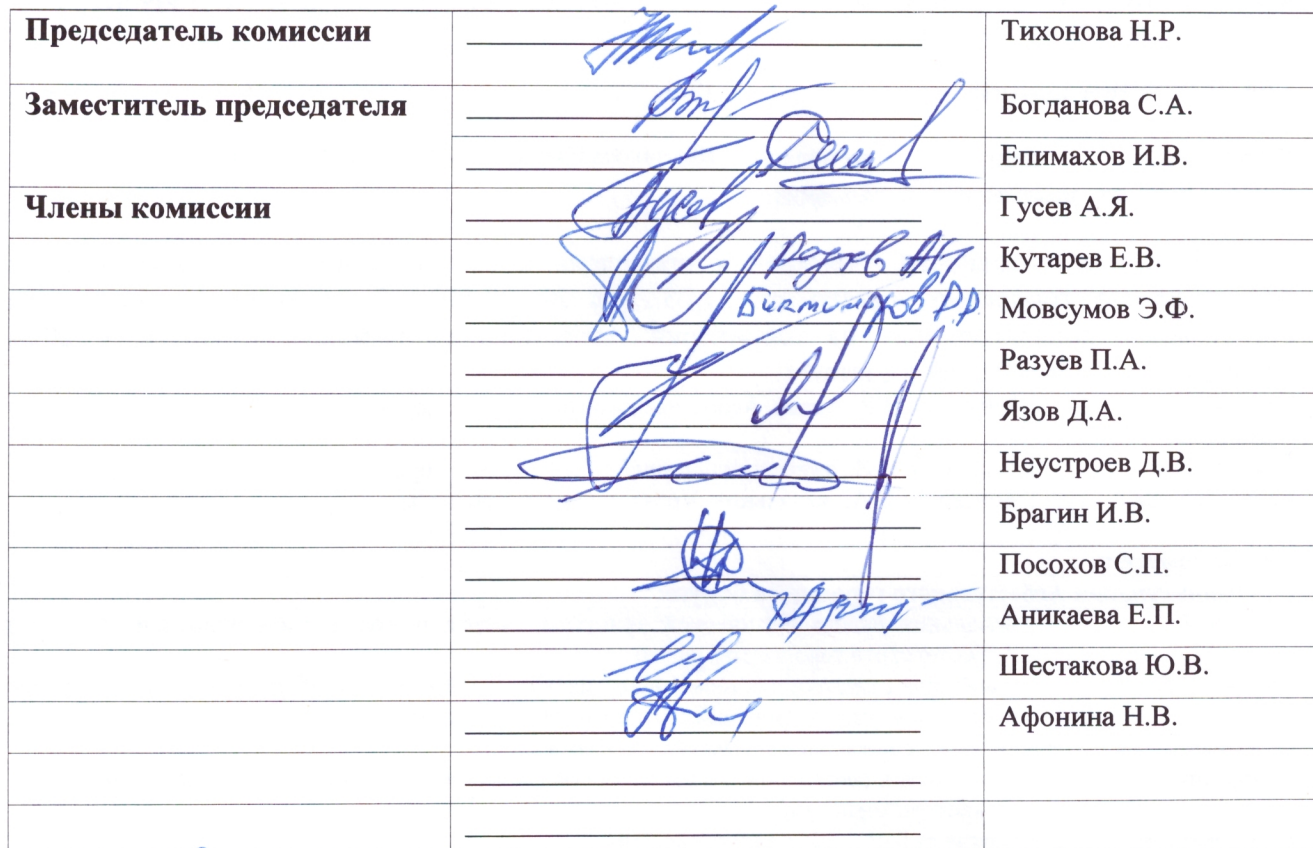 Председатель комиссии Тихонова Н.Р.
Заместитель председателя Богданова С.А.
Епимахов И.В.
Члены комиссии Гусев А.Я.
Кутарев Е.В.
Биктимиров Р.Р. Мовсумов Э.Ф.
Разуев П.А.
Язов Д.А.
Неустроев Д.В.
Брагин И.В.
Посохов С.П.
Аникаева Е.П.
Шестакова Ю.В.
Афонина Н.В.